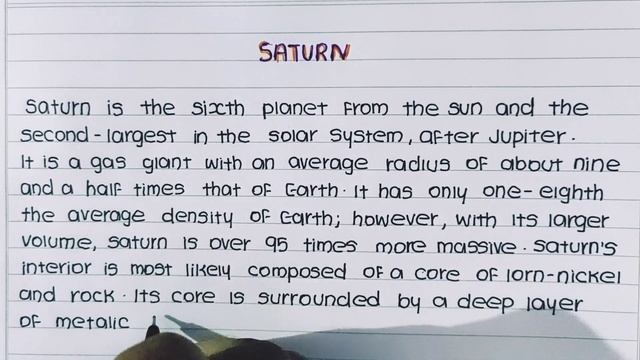 SATURN
Saturn is the sixth planet from the sun and the
second-largest in the solar system, after Jupiter.
It is a gas giant with an average radius of about nine
and a half times that of Earth. It has only one-eighth
the average density of Earth; however, with its larger
volume, saturn is over 95 times more massive. saturn's
interior is most likely composed of a core of Iorn-nickel
and rock. Its core is surrounded by a deep layer
of metalic